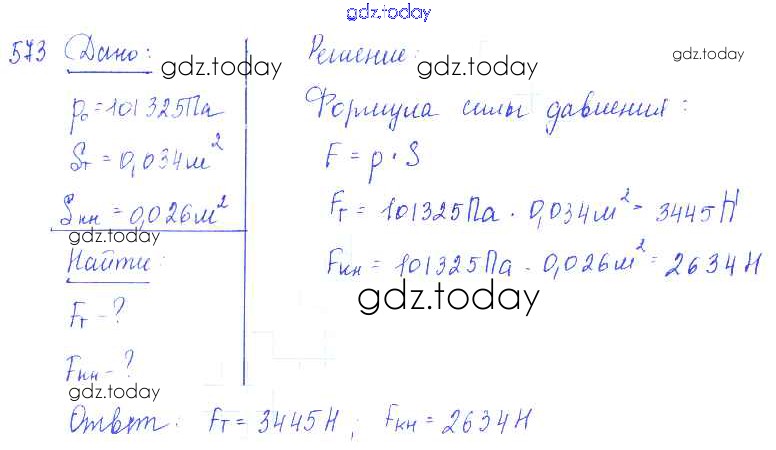 gdz.today
573 Дано:
gdz.today
p₀ = 101325 Па
Sт = 0,034 м²
Sкн = 0,026 м²
gdz.today
Найти:
Fт - ?
Fкн - ?
gdz.today
Решение:
gdz.today
gdz.today
Формула силы давления:
F = p · S
Fт = 101325 Па · 0,034 м² = 3445 Н
Fкн = 101325 Па · 0,026 м² = 2634 Н
gdz.today
Ответ: Fт = 3445 Н; Fкн = 2634 Н